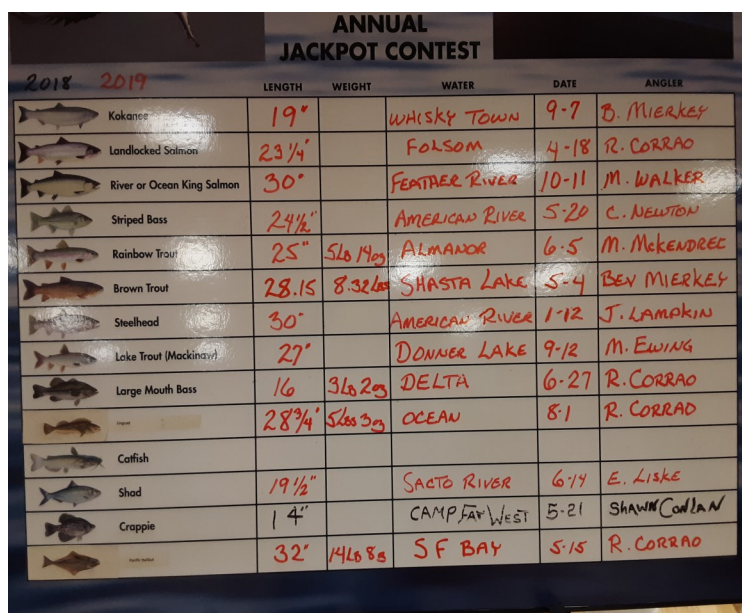 ANNUAL
JACKPOT CONTEST
2018 2019
LENGTH WEIGHT WATER DATE ANGLER
Kokanee 19" WHISKY TOWN 9-7 B. MIERKEY
Landlocked Salmon 23 1/4" FOLSOM 4-18 R. CORRAO
River or Ocean King Salmon 30" FEATHER RIVER 10-11 M. WALKER
Striped Bass 24 1/2" AMERICAN RIVER 5-20 C. NEWTON
Rainbow Trout 25" 5Lb 14oz ALMANOR 6-5 M. McKENDREE
Brown Trout 28.15 8.32Lbs SHASTA LAKE 5-4 BEV MIERKEY
Steelhead 30" AMERICAN RIVER 1-12 J. LAMPKIN
Lake Trout (Mackinaw) 27" DONNER LAKE 9-12 M. EWING
Large Mouth Bass 16 3Lb 2oz DELTA 6-27 R. CORRAO
28 3/4" 5Lbs 3oz OCEAN 8-1 R. CORRAO
Catfish
Shad 19 1/2" SACTO RIVER 6-14 E. LISKE
Crappie 14" CAMP FAR WEST 5-21 SHAWN CONLAN
Pacific Halibut 32" 14Lb 8oz SF BAY 5-15 R. CORRAO